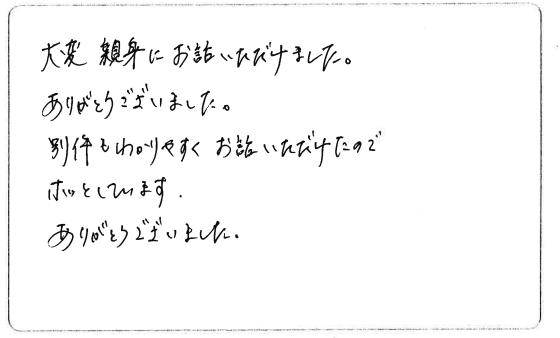 大変 親身に お話いただけました。
ありがとうございました。
別件もわかりやすく お話いただけたので
ホッとしています.
ありがとうございました。